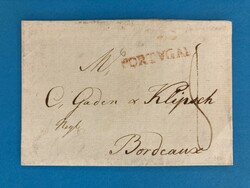 PORTVGAL
Mrs
C. Gaden & Klipsch
Negts
Bordeaux
8